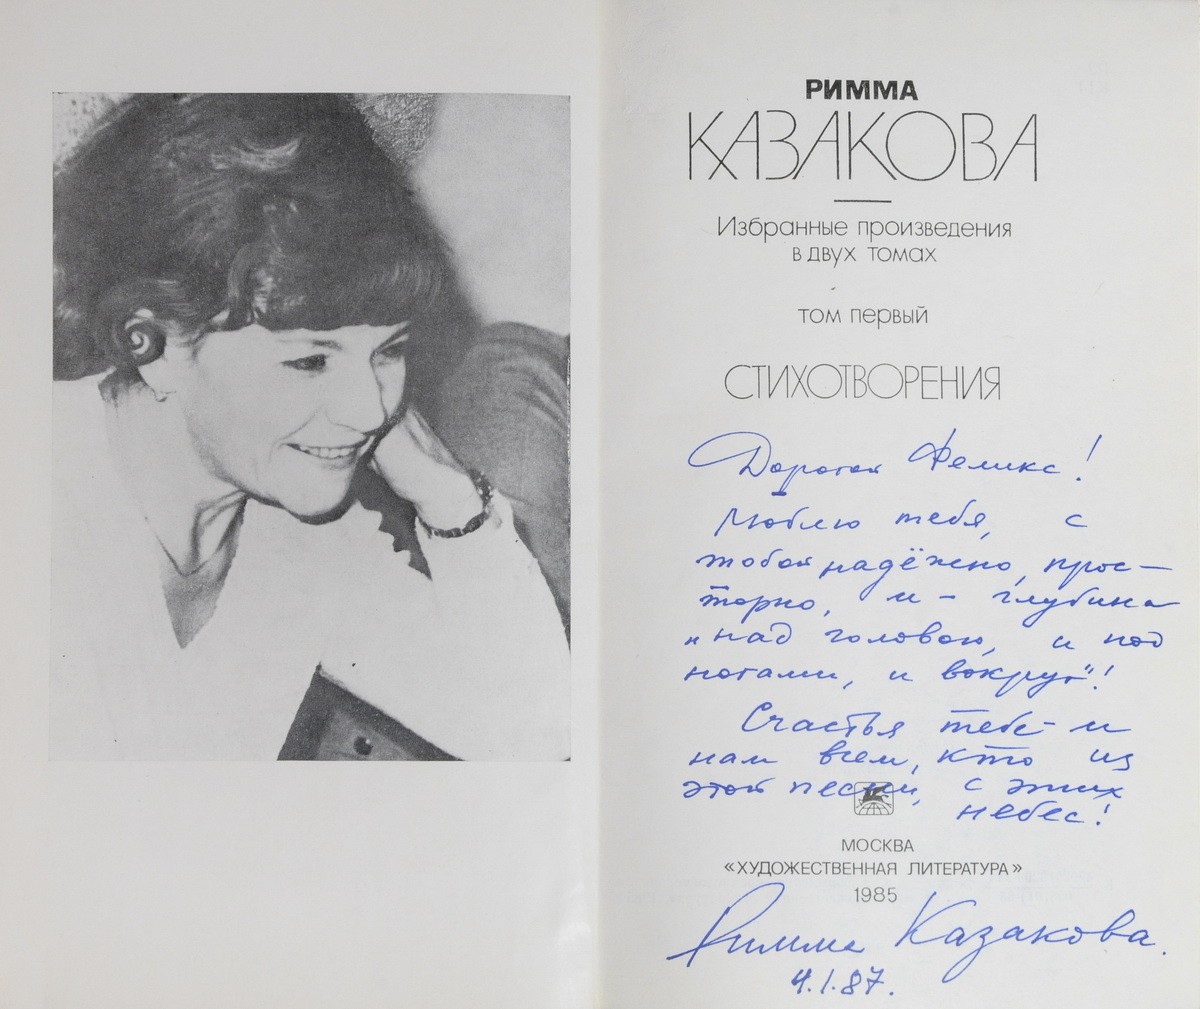 РИММА
КАЗАКОВА
Избранные произведения
в двух томах
том первый
СТИХОТВОРЕНИЯ
Дорогой Феликс!
Люблю тебя, с
тобой надёжно, прос-
торно, и – глубина
"над головою, и под
ногами, и вокруг"!
Счастья тебе – и
нам всем, кто из
этой песни, с этих
небес!
МОСКВА
«ХУДОЖЕСТВЕННАЯ ЛИТЕРАТУРА»
1985
Римма Казакова.
4.I.87.